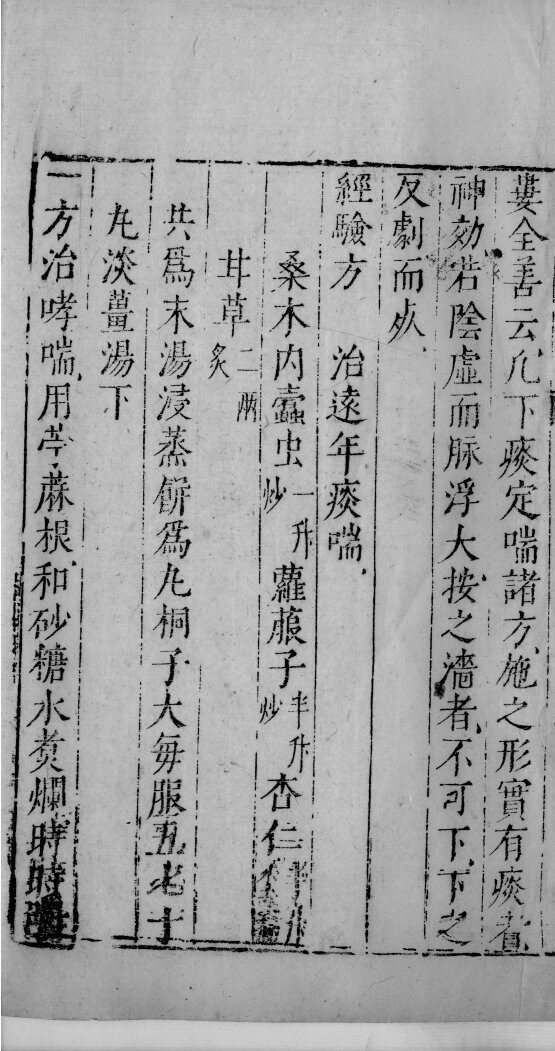 婁全善云凢下痰定喘諸方施之形實有痰者
神効若陰虛而脉浮大按之濇者不可下下之
反劇而死
經驗方　治遠年痰喘
桑木内蠧虫一升炒蘿蔔子半升炒杏仁
甘草二兩炙
共爲末湯浸蒸餅爲丸桐子大每服五七十
丸淡薑湯下
一方治哮喘用苧蔴根和砂糖水煑爛時時